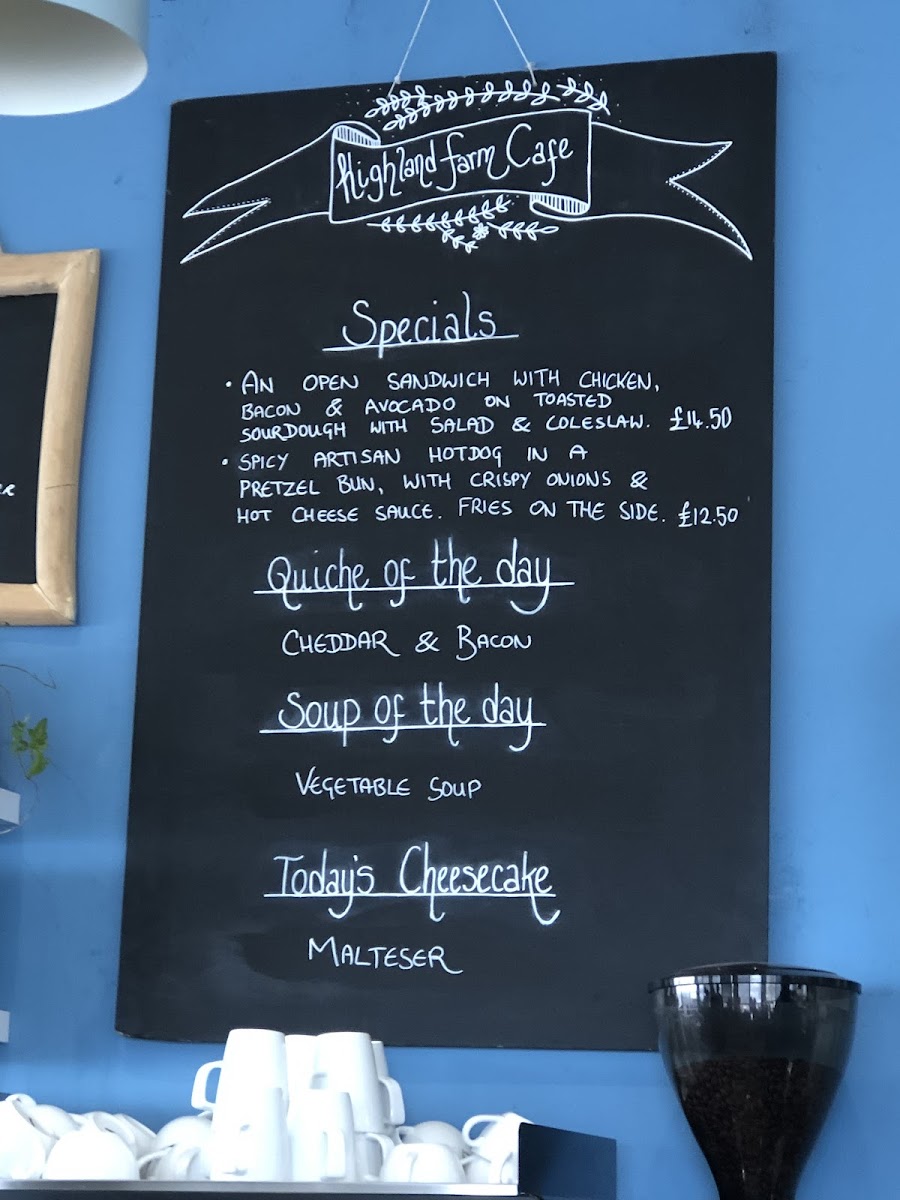 Highland Farm Cafe
Specials
• AN OPEN SANDWICH WITH CHICKEN,
BACON & AVOCADO ON TOASTED
SOURDOUGH WITH SALAD & COLESLAW. £14.50
• SPICY ARTISAN HOTDOG IN A
PRETZEL BUN, WITH CRISPY ONIONS &
HOT CHEESE SAUCE. FRIES ON THE SIDE. £12.50
Quiche of the day
CHEDDAR & BACON
Soup of the day
VEGETABLE SOUP
Today's Cheesecake
MALTESER